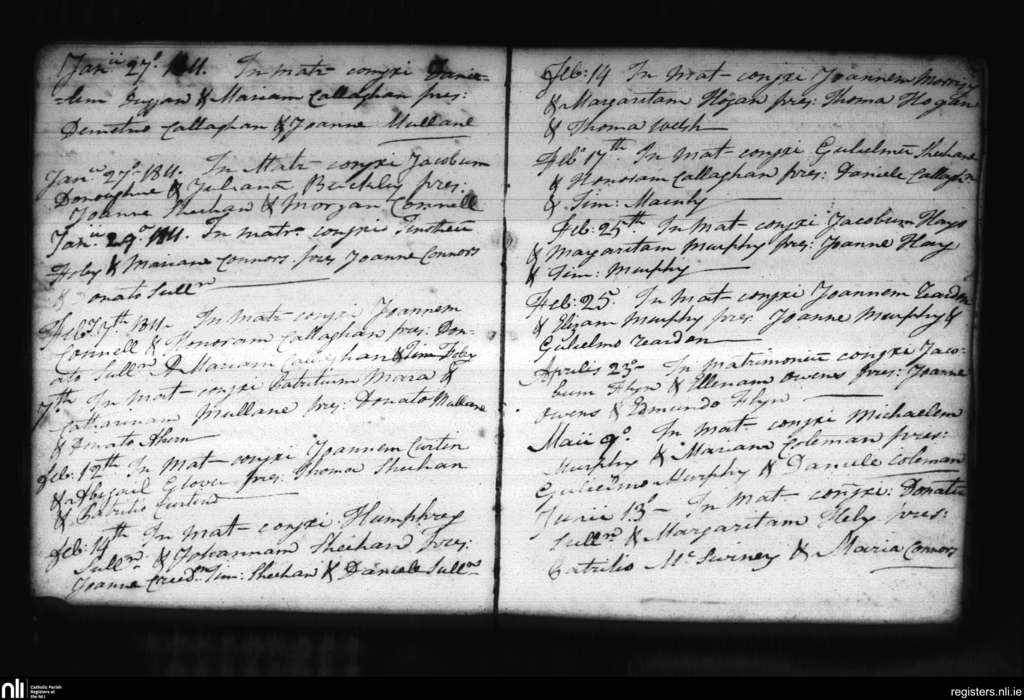 Janii 27o. 1811. In matr conjxi Danie-
-lem Duggan & Mariam Callaghan pres:
Demetrio Callaghan & Joanne Mullane
Janii 27o 1811. In Matr conjxi Jacobum
Donoghue & Julianā Buckley pres:
Joanne Sheehan & Morgan Connell
Janii 29o 1811. In matr. conjxi
Foley & Mariane Connors pres Joanne Connors
& onato Sulln
Feb. 7th 1811. In mat- conjxi Joannem
Connell & Honoram Callaghan pres: Don-
ato Sulln & Mariam Callaghan & Tim Foley
7th In mat- conjxi Patritium Mara &
Catharinam Mullane pres: Donato Mullane
& Donato Ahern
Feb: 12th In Mat- conjxi Joannem Curtin
& Abigail Glover pres: Thoma Sheehan
& Patritio Curtin
Feb: 14th In mat- conjxi Humphrey
Sulln & Johannam Sheehan pres:
Joanne Creedn Tim: Sheehan & Daniele Sulln
Feb: 14 In Mat- conjxi Joannem Morrissy
& Margaritam Hogan pres: Thoma Hogan
& Thoma Welsh
Feb: 17th In Mat- conjxi Gulielmū Sheehane
& Honoram Callaghan pres: Daniele Callaghn
& Tim:
Feb: 25th In mat- conjxi Jacobum Hayes
& Margaritam Murphy pres: Joanne Hay
& Tim: Murphy
Feb: 25o In Mat- conjxi Joannem Reardon
& Elizam Murphy pres Joanne Murphy &
Gulielmo Reardon
Aprilis 23o- In matrimoniū conjxi Jaco-
bum Flyn & Ellenam Owens pres: Joanne
Owens & Edmundo Flyn
Maii 9o. In mat- conjxi Michaelem
Murphy & Mariam Coleman pres:
Gulielmo Murphy & Daniele Coleman
Junii 13o- In mat- conjxi: Donatū
Sulln & Margaritam Hely pres:
Patritio Mc Swiney & Maria Connors
nli
Catholic Parish
Registers at
the NLI
registers.nli.ie